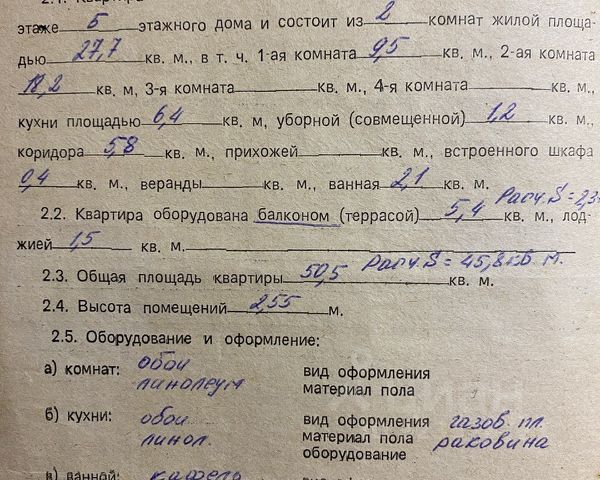 этаже 5 этажного дома и состоит из 2 комнат жилой площа-
дью 27,7 кв. м., в т. ч. 1-ая комната 9,5 кв. м., 2-ая комната
18,2 кв. м, 3-я комната кв. м., 4-я комната кв. м.,
кухни площадью 6,4 кв. м, уборной (совмещенной) 1,2 кв. м.,
коридора 5,8 кв. м., прихожей кв. м., встроенного шкафа
0,4 кв. м., веранды кв. м., ванная 2,1 кв. м.
Расч. S = 2,3
2.2. Квартира оборудована балконом (террасой) 5,4 кв. м., лод-
жией 1,5 кв. м.
Расч. S = 45,8 кв. м.
2.3. Общая площадь квартиры 50,5 кв. м.
2.4. Высота помещений 2,55 м.
2.5. Оборудование и оформление:
а) комнат: обои вид оформления
линолеум материал пола
б) кухни: обои вид оформления газов. пл.
линол. материал пола раковина
оборудование
в) ванной: кафель